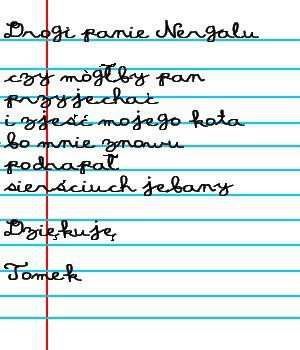 Drogi panie Nergalu
czy mògłby pan
przyjechać
i zjeść mojego kota
bo mnie znowu
podrapał
sierściuch jebany
Dziękuję
Tomek